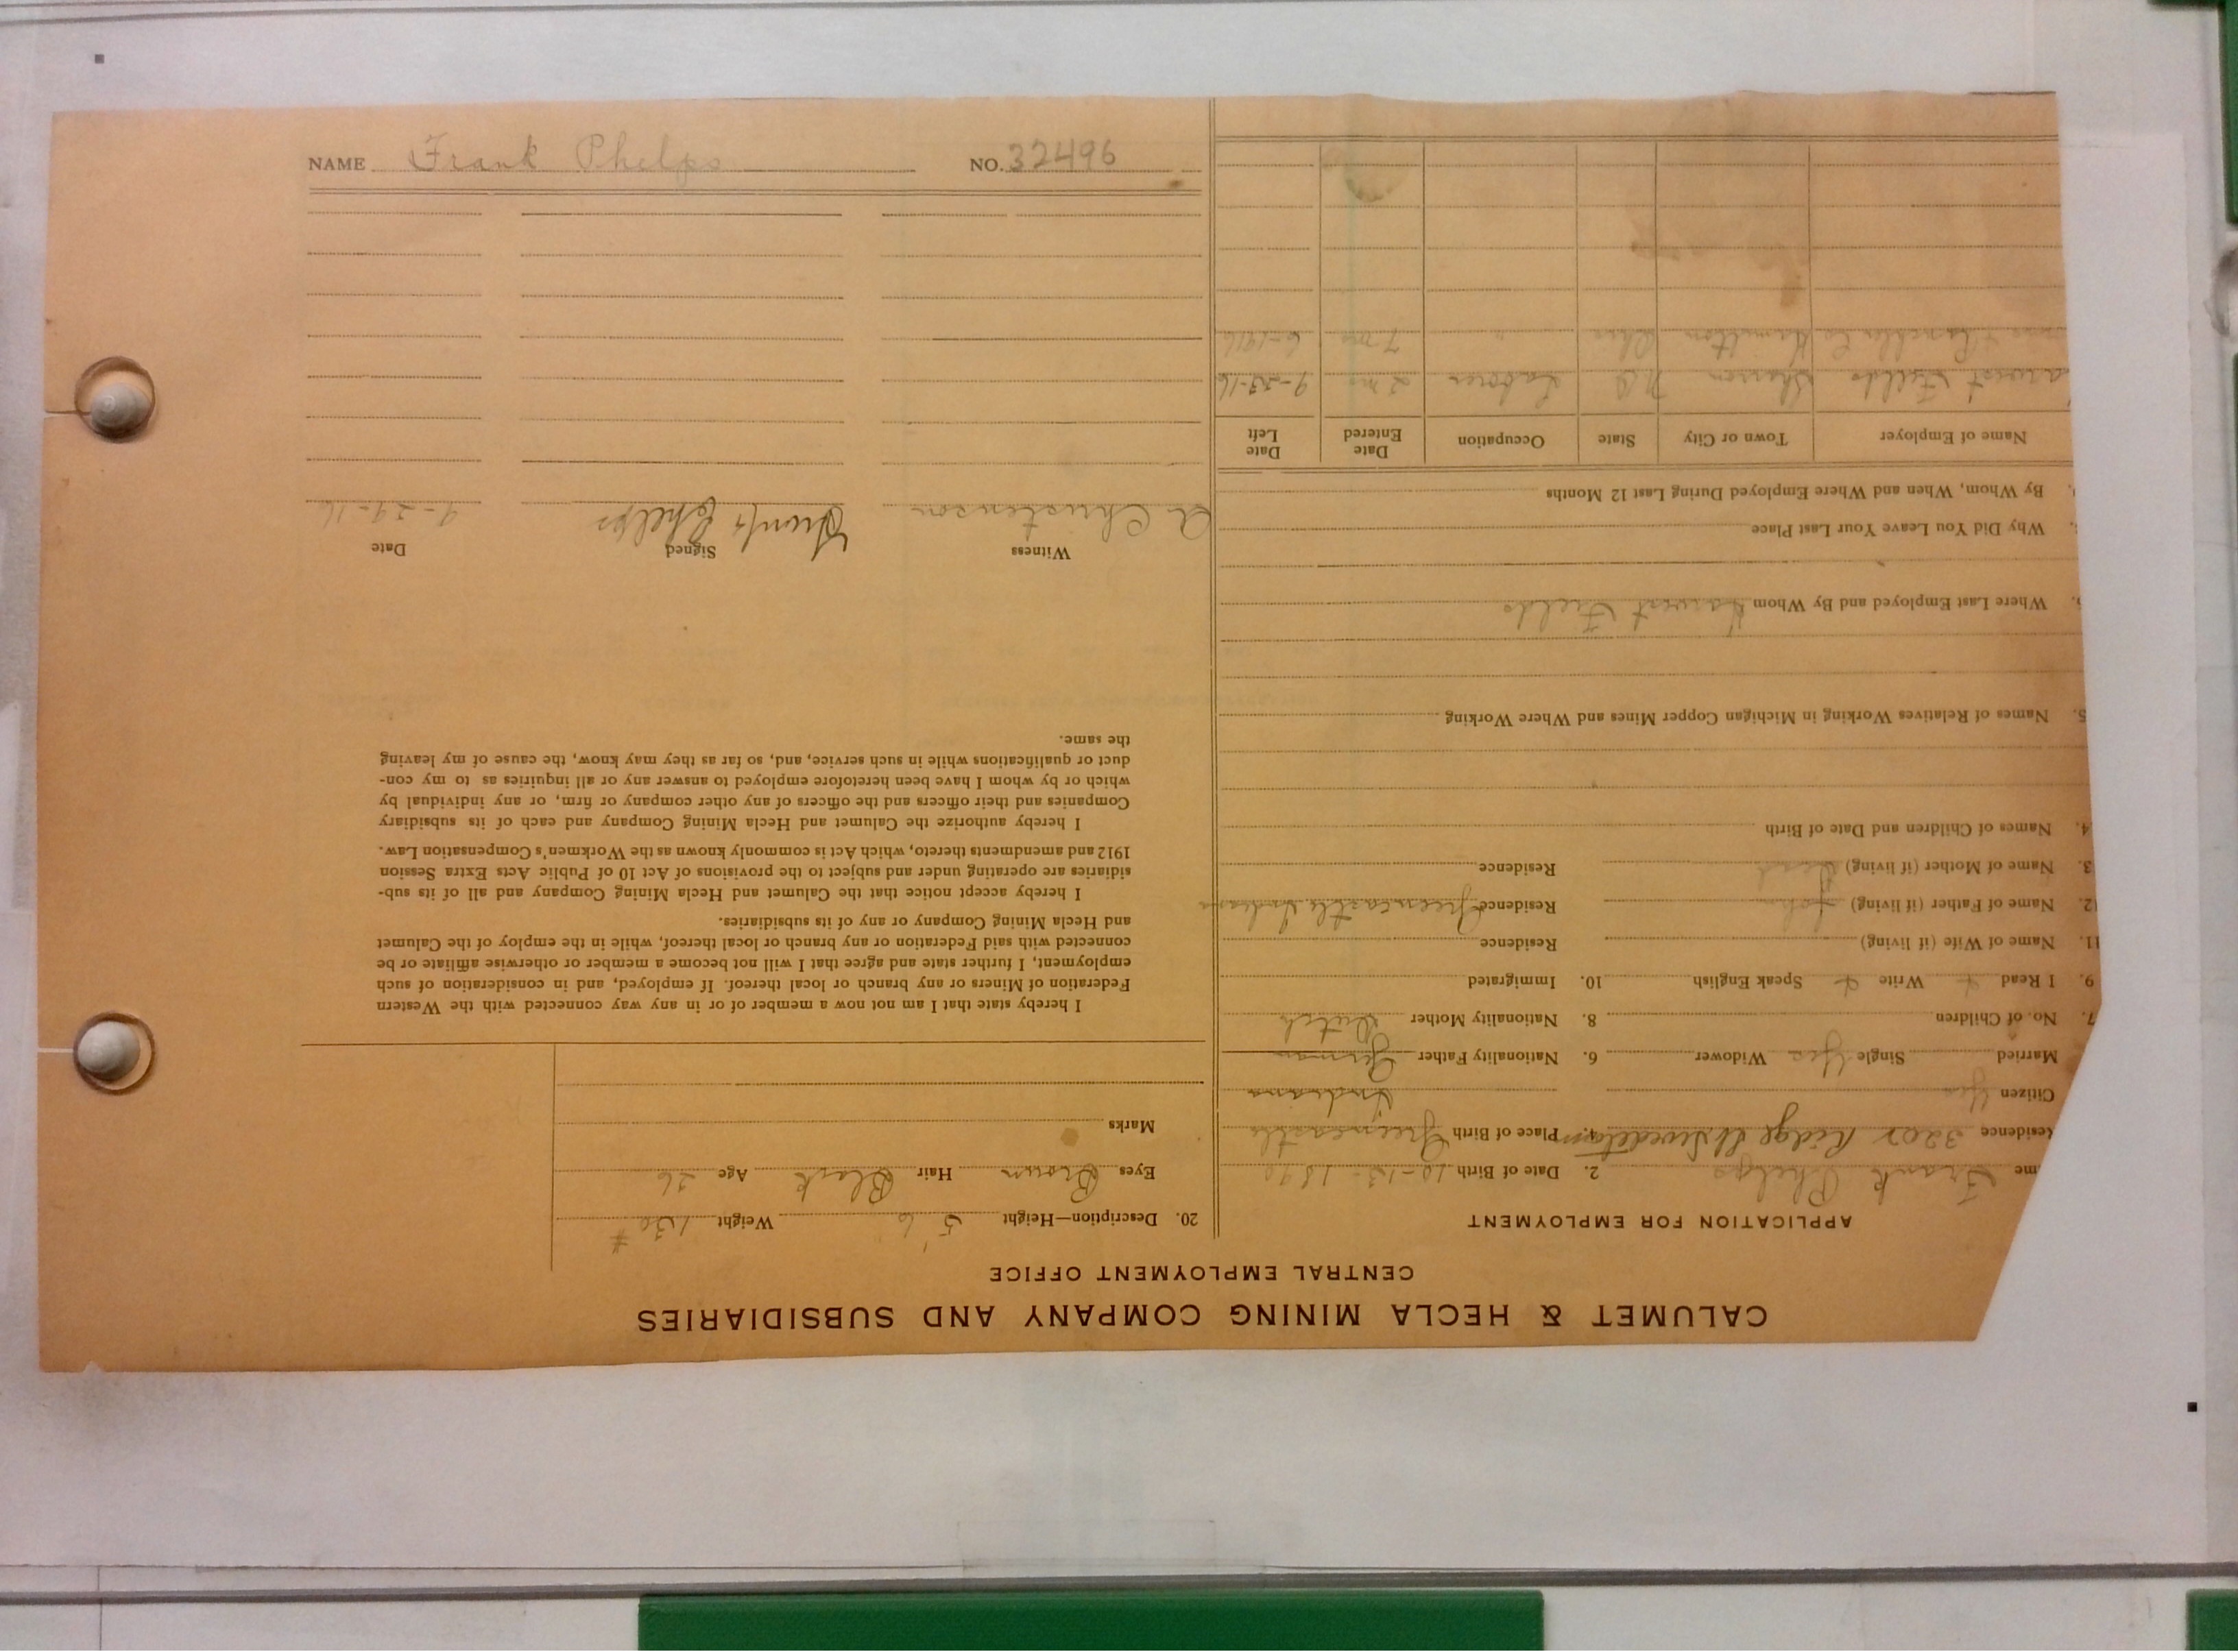 NAME Frank Phelps NO. 32496
CALUMET & HECLA MINING COMPANY AND SUBSIDIARIES
CENTRAL EMPLOYMENT OFFICE
APPLICATION FOR EMPLOYMENT
me Frank Phelps 2. Date of Birth 10-13-1890
Residence 3207 Ridge St Swedetown 4. Place of Birth Greencastle
Citizen Yes Indiana
Married Single Yes Widower 6. Nationality Father German
7. No. of Children 8. Nationality Mother Dutch
9. I Read Write Speak English 10. Immigrated
11. Name of Wife (if living) Residence
12. Name of Father (if living) John Residence Greencastle Indiana
3. Name of Mother (if living) Dead Residence
4. Names of Children and Date of Birth
5. Names of Relatives Working in Michigan Copper Mines and Where Working
Where Last Employed and By Whom Harvest Fields
Why Did You Leave Your Last Place
By Whom, When and Where Employed During Last 12 Months
Name of Employer Town or City State Occupation Date Entered Date Left
arvest Fields N D Laborer 2 mo 9-23-16
Co Hamilton Ohio " 7 mo 6-1916
20. Description—Height 5' 6 Weight 130 #
Eyes Brown Hair Black Age 26
Marks
I hereby state that I am not now a member of or in any way connected with the Western
Federation of Miners or any branch or local thereof. If employed, and in consideration of such
employment, I further state and agree that I will not become a member or otherwise affiliate or be
connected with said Federation or any branch or local thereof, while in the employ of the Calumet
and Hecla Mining Company or any of its subsidiaries.
I hereby accept notice that the Calumet and Hecla Mining Company and all of its sub-
sidiaries are operating under and subject to the provisions of Act 10 of Public Acts Extra Session
1912 and amendments thereto, which Act is commonly known as the Workmen's Compensation Law.
I hereby authorize the Calumet and Hecla Mining Company and each of its subsidiary
Companies and their officers and the officers of any other company or firm, or any individual by
which or by whom I have been heretofore employed to answer any or all inquiries as to my con-
duct or qualifications while in such service, and, so far as they may know, the cause of my leaving
the same.
Witness Signed Date
A Christenson Frank Phelps 9-29-16